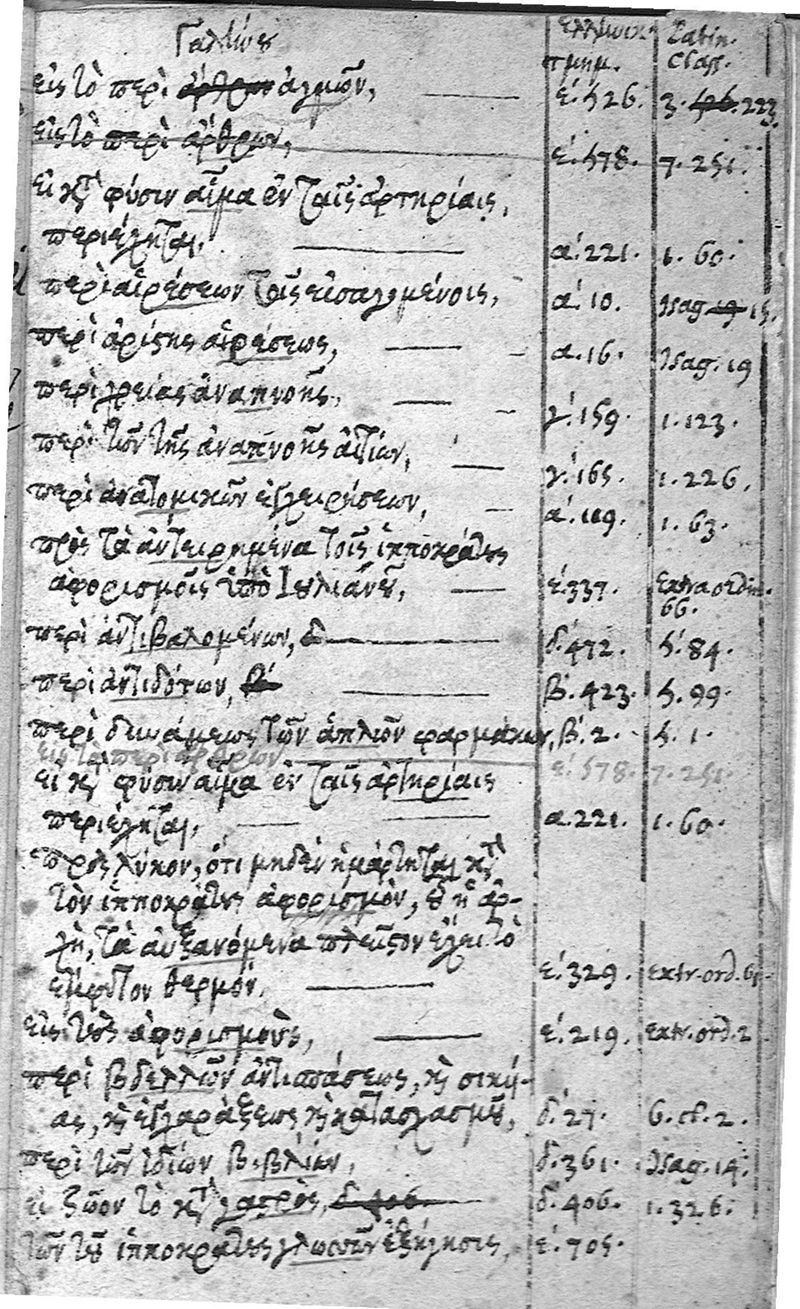 Γαληνοῦ Ἑλληνικ. τμημ. Latin. Class.
εἰς τὸ περὶ ἄρθρων ἀγμῶν, ε. 526. 3. 223.
εἰς τὸ περὶ ἄρθρων, ε. 578. 7. 251.
εἰ κτ φύσιν αἷμα ἐν ταῖς ἀρτηρίαις,
περιέχηται, α. 221. 1. 60.
περὶ αἱρέσεων τοῖς εἰσαγομένοις, α. 10. Isag. 19 15.
περὶ ἀρίστης αἱρέσεως, α. 16. Isag. 19
περὶ χρείας ἀναπνοῆς, γ. 159. 1. 123.
περὶ τῶν τῆς ἀναπνοῆς αἰτίων, γ. 165. 1. 226.
περὶ ἀνατομικῶν ἐγχειρήσεων, α. 119. 1. 63.
πρὸς τὰ ἀντειρημένα τοῖς ἱπποκράτους
ἀφορισμοῖς ὑπὸ Ἰουλιάνου, ε. 337. Extraordin. 66.
περὶ ἀντιβαλομένων, δ. 472. 5. 84.
περὶ ἀντιδότων, β β. 423. 5. 99.
περὶ δυνάμεως τῶν ἁπλῶν φαρμάκων, β. 2. 5. 1.
εἰς τὸ περὶ ἄρθρων, ε. 578. 7. 251.
εἰ κτ φύσιν αἷμα ἐν ταῖς ἀρτηρίαις
περιέχηται, α. 221. 1. 60.
πρὸς λύκον, ὅτι μηδὲν ἡμάρτηται κτ
τὸν ἱπποκράτους ἀφορισμὸν, οὗ ἡ ἀρ-
χὴ, τὰ αὐξανόμενα πλεῖστον ἔχει τὸ
ἔμφυτον θερμόν, ε. 329. Extr. ord. 61.
εἰς τοὺς ἀφορισμοὺς, ε. 219. Extr. ord. 2
περὶ βδελλῶν ἀντισπάσεως, κὶ σικύ-
ας, κὶ ἐγχαράξεως κὶ καταπλασμοῦ, δ. 27. 6. cl. 2.
περὶ τῶν ἰδίων βιβλίων, δ. 361. Isag. 14.
εἰ ζῶον τὸ κτ γαστρὸς, δ. 406. δ. 406. 1. 326.
τῶν τοῦ ἱπποκράτους γλωσσῶν ἐξήγησις, ε. 705.